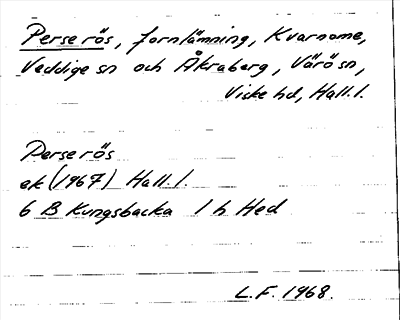 Perse rös, fornlämning, Kvarnome,
Veddige sn och Åkraberg, Värö sn,
Viske hd, Hall. l.
Perse rös
ek (1967) Hall. l.
6 B Kungsbacka 1 h Hed
L.F. 1968.